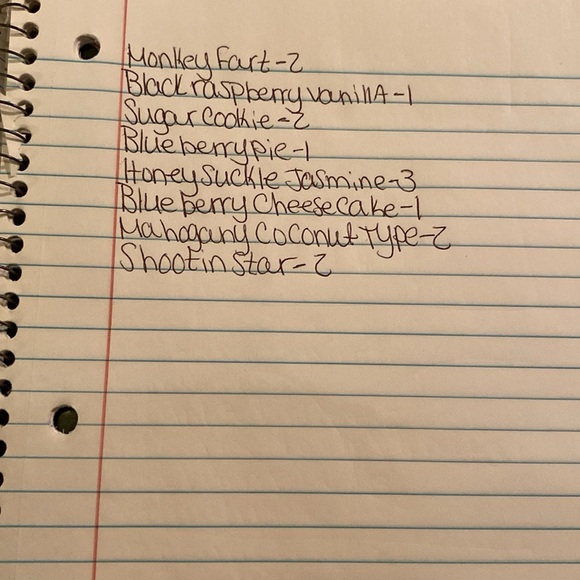 Monkey Fart-2
Black raspberry vanillA-1
Sugar Cookie-2
Blueberry pie-1
Honey Suckle Jasmine-3
Blue berry Cheese Cake-1
Mahogany Coconut Type-2
Shootin Star-2